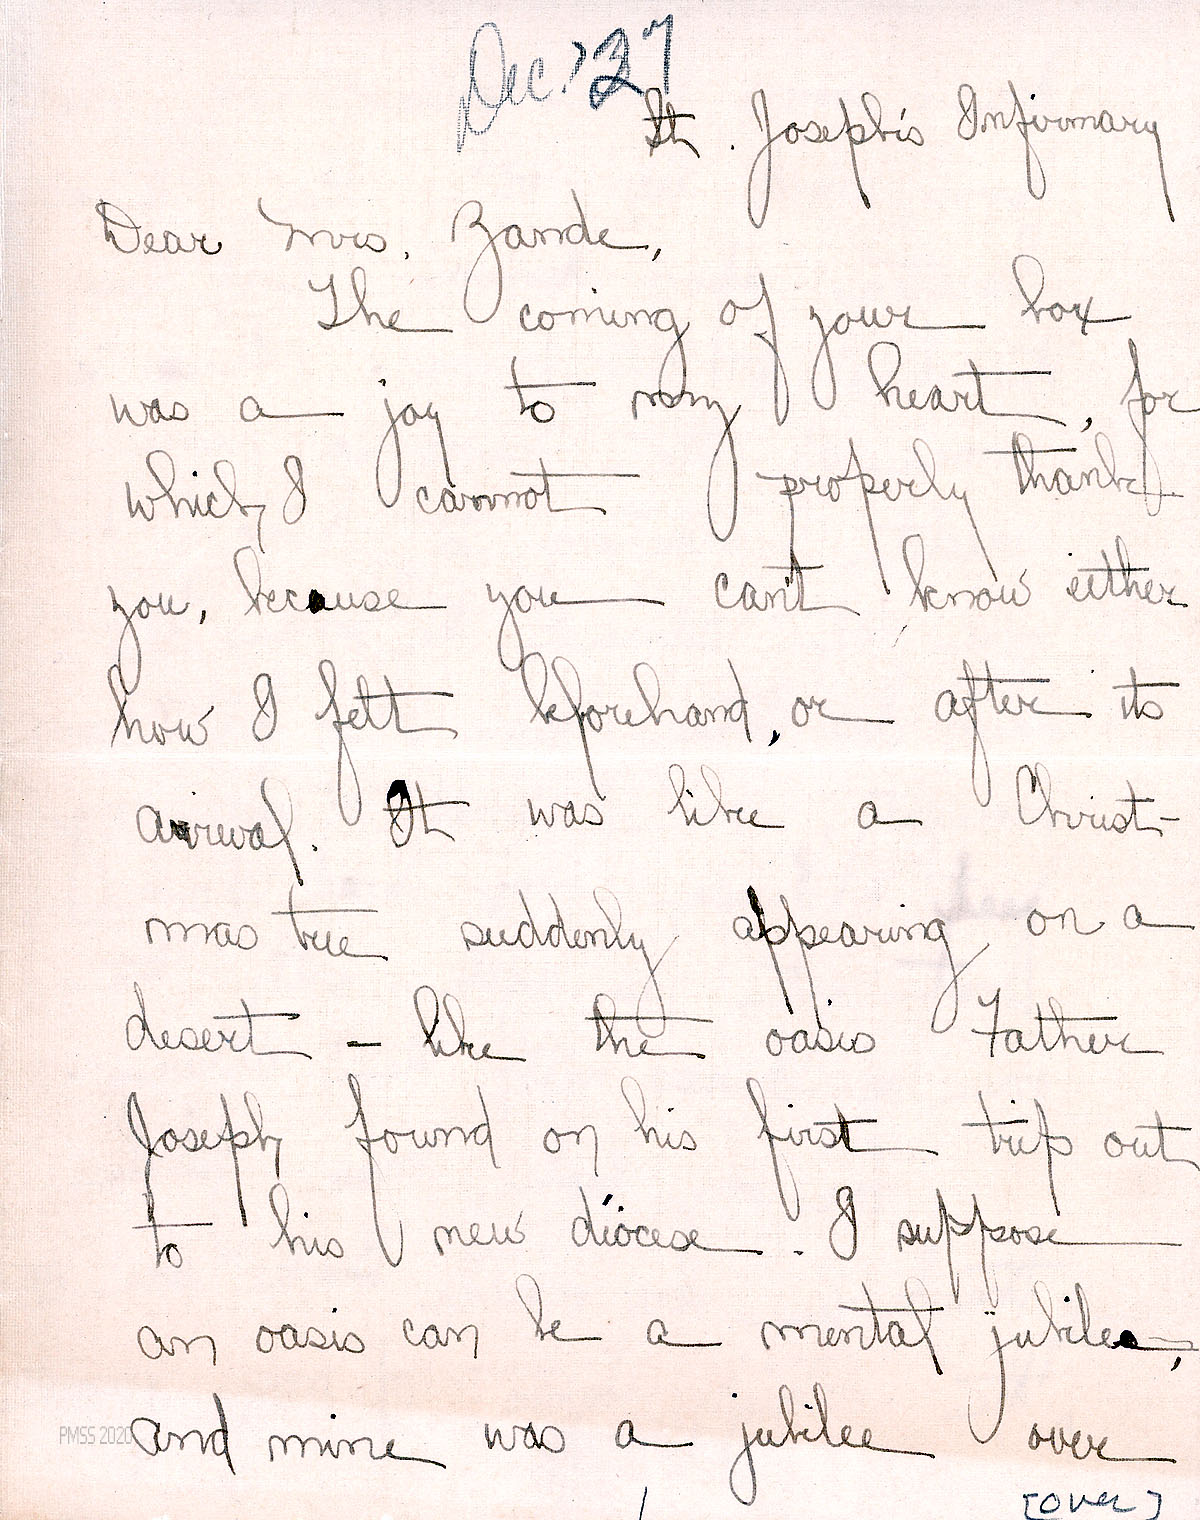 Dec. '27
St. Joseph's Infirmary
Dear Mrs. Zande,
The coming of your box
was a joy to my heart, for
which I cannot properly thank
you, because you can't know either
how I felt beforehand, or after its
arrival. It was like a Christ-
mas tree suddenly appearing on a
desert - like the oasis Father
Joseph found on his first trip out
to his new diocese. I suppose
an oasis can be a mental jubilee,
PMSS 2020
and mine was a jubilee over
[over]